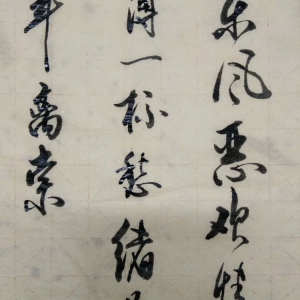 东风恶欢情
薄一杯愁绪
年离索